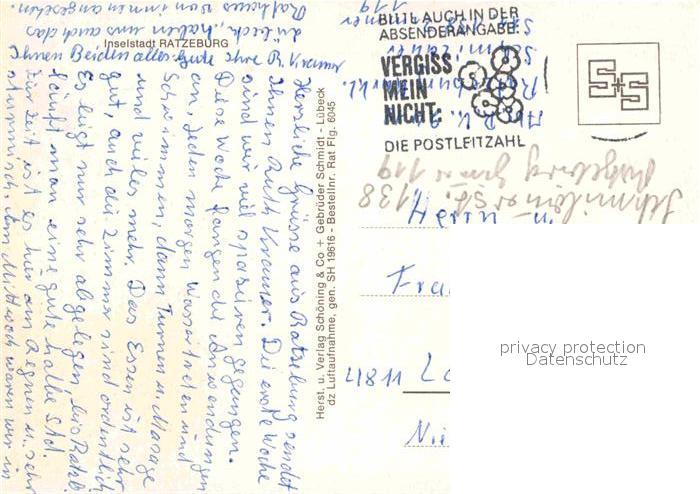 Inselstadt RATZEBURG
Herzliche Grüsse aus Ratzeburg sendet
Ihnen Ruth Kramer. Die erste Woche
sind wir viel spazieren gegangen.
Diese Woche fangen die Anwendungen
an, jeden morgen Wassertreten und
Schwimmen, dann Turnen u. Massage
und vieles mehr. Das Essen ist sehr
gut, auch die Zimmer sind ordentlich.
Es liegt nur sehr abgelegen, bis Ratzb.
läuft man eine gute halbe Std.
Zur Zeit ist es hier am Regnen u. sehr
stürmisch. Am Mittwoch waren wir in
Lübeck, haben uns auch das
Rathaus von innen angesehen.
Ihnen Beiden alles gute Ihre R. Kramer
Herst. u. Verlag Schöning & Co + Gebrüder Schmidt - Lübeck
dz Luftaufnahme, gen. SH 19616 - Bestellnr. Rat Flg. 6045
BITTE AUCH IN DER
ABSENDERANGABE:
VERGISS
MEIN
NICHT:
DIE POSTLEITZAHL
S+S
119
Schmilauer Str.
Ratzeburg Zimmer 119
Fra
Ni
privacy protection
Datenschutz